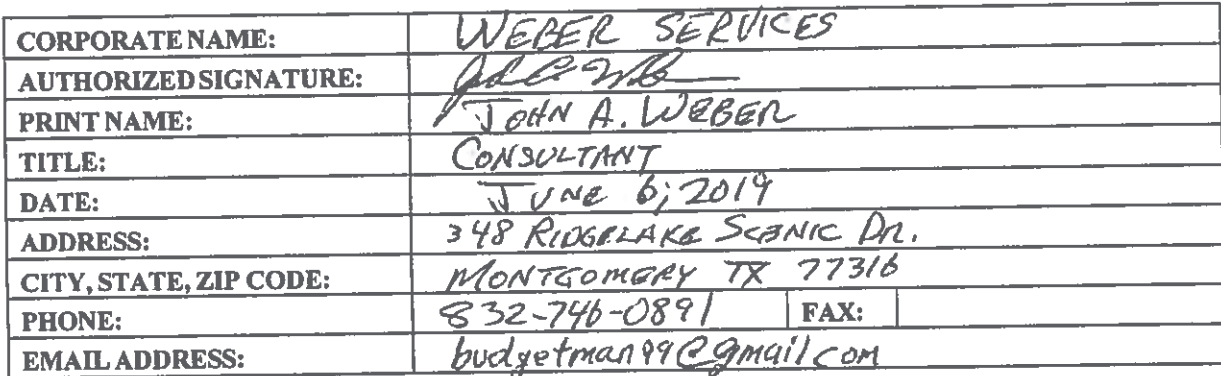 CORPORATE NAME: WEBER SERVICES
AUTHORIZED SIGNATURE:
PRINT NAME: JOHN A. WEBER
TITLE: CONSULTANT
DATE: JUNE 6, 2019
ADDRESS: 348 RIDGELAKE SCENIC DR.
CITY, STATE, ZIP CODE: MONTGOMERY TX 77316
PHONE: 832-746-0891 FAX:
EMAIL ADDRESS: budgetman99@gmail.com